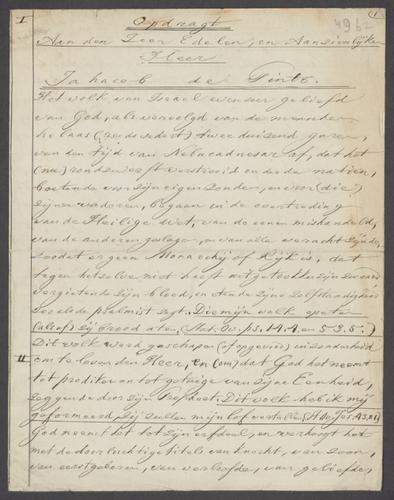 I Opdragt 4962 (1
Aan den Zeer Edelen, en Aanzienlijken
Heer
Jahacob de Pinto.
Het volk van Israel evenzeer geliefd
van God, als vervolgd van de menschen
helaas (runds vedert) twee duizend jaren,
van den tijd van Nebucadnesar af, dat het
(nu) rondzwerft verstrooid onder de natien,
boetende voor zijn eigen zonden, en voor (die)
zijner vaderen, begaan in de overtreding
van de Heilige wet, van de eenen mishandeld,
van de anderen geslagen, en van alle veracht zijnde,
zoodat er geen Monarchij of Rijk is, dat
tegen hetzelve niet heeft uitgetrokken zijn zwaard
vergietende zijn bloed, en etende zijne zelfstandigheid
zoo als de psalmist zegt. Die mijn volk opeten
(alsof) zij brood aten,
Dit volk werd geschapen (of opgevoed) inzonderheid
II om te loven den Heer, en (om) dat God het neemt
tot prediker en tot getuige van zijne Eenheid,
zeggende door zijn Propheet: Dit volk heb ik mij
geformeerd, zij zullen mijn lof vertellen,
God neemt het tot zijn erfdeel, en verhoogt het
met de doorluchtige titels van knecht, van zoon,
van eerstgeboren, van verloofde, van geliefde,